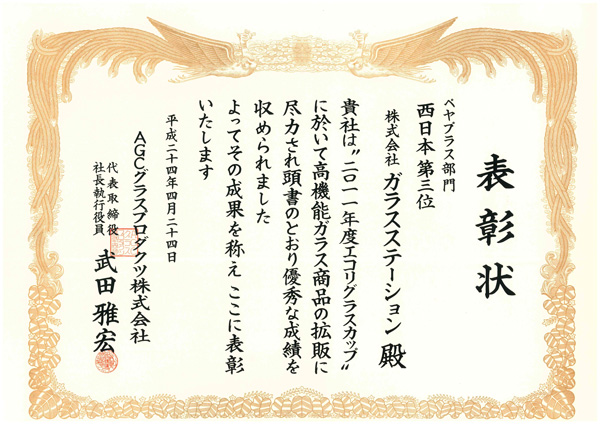 表彰状
ペヤプラス部門
西日本 第三位
株式会社 ガラスステーション 殿
貴社は〝二〇一一年度エコリグラスカップ〟
に於いて高機能ガラス商品の拡販に
尽力され頭書のとおり優秀な成績を
収められました
よってその成果を称え ここに表彰
いたします
平成二十四年四月二十四日
AGCグラスプロダクツ株式会社
代表取締役
社長執行役員
武田雅宏